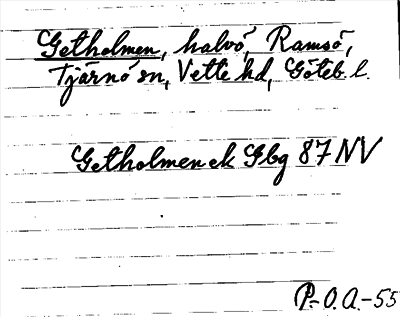 Getholmen, halvö, Ramsö,
Tjärnö sn, Vette hd, Göteb. l.
Getholmen ek Gbg 87 NV
P.-O.A.-55